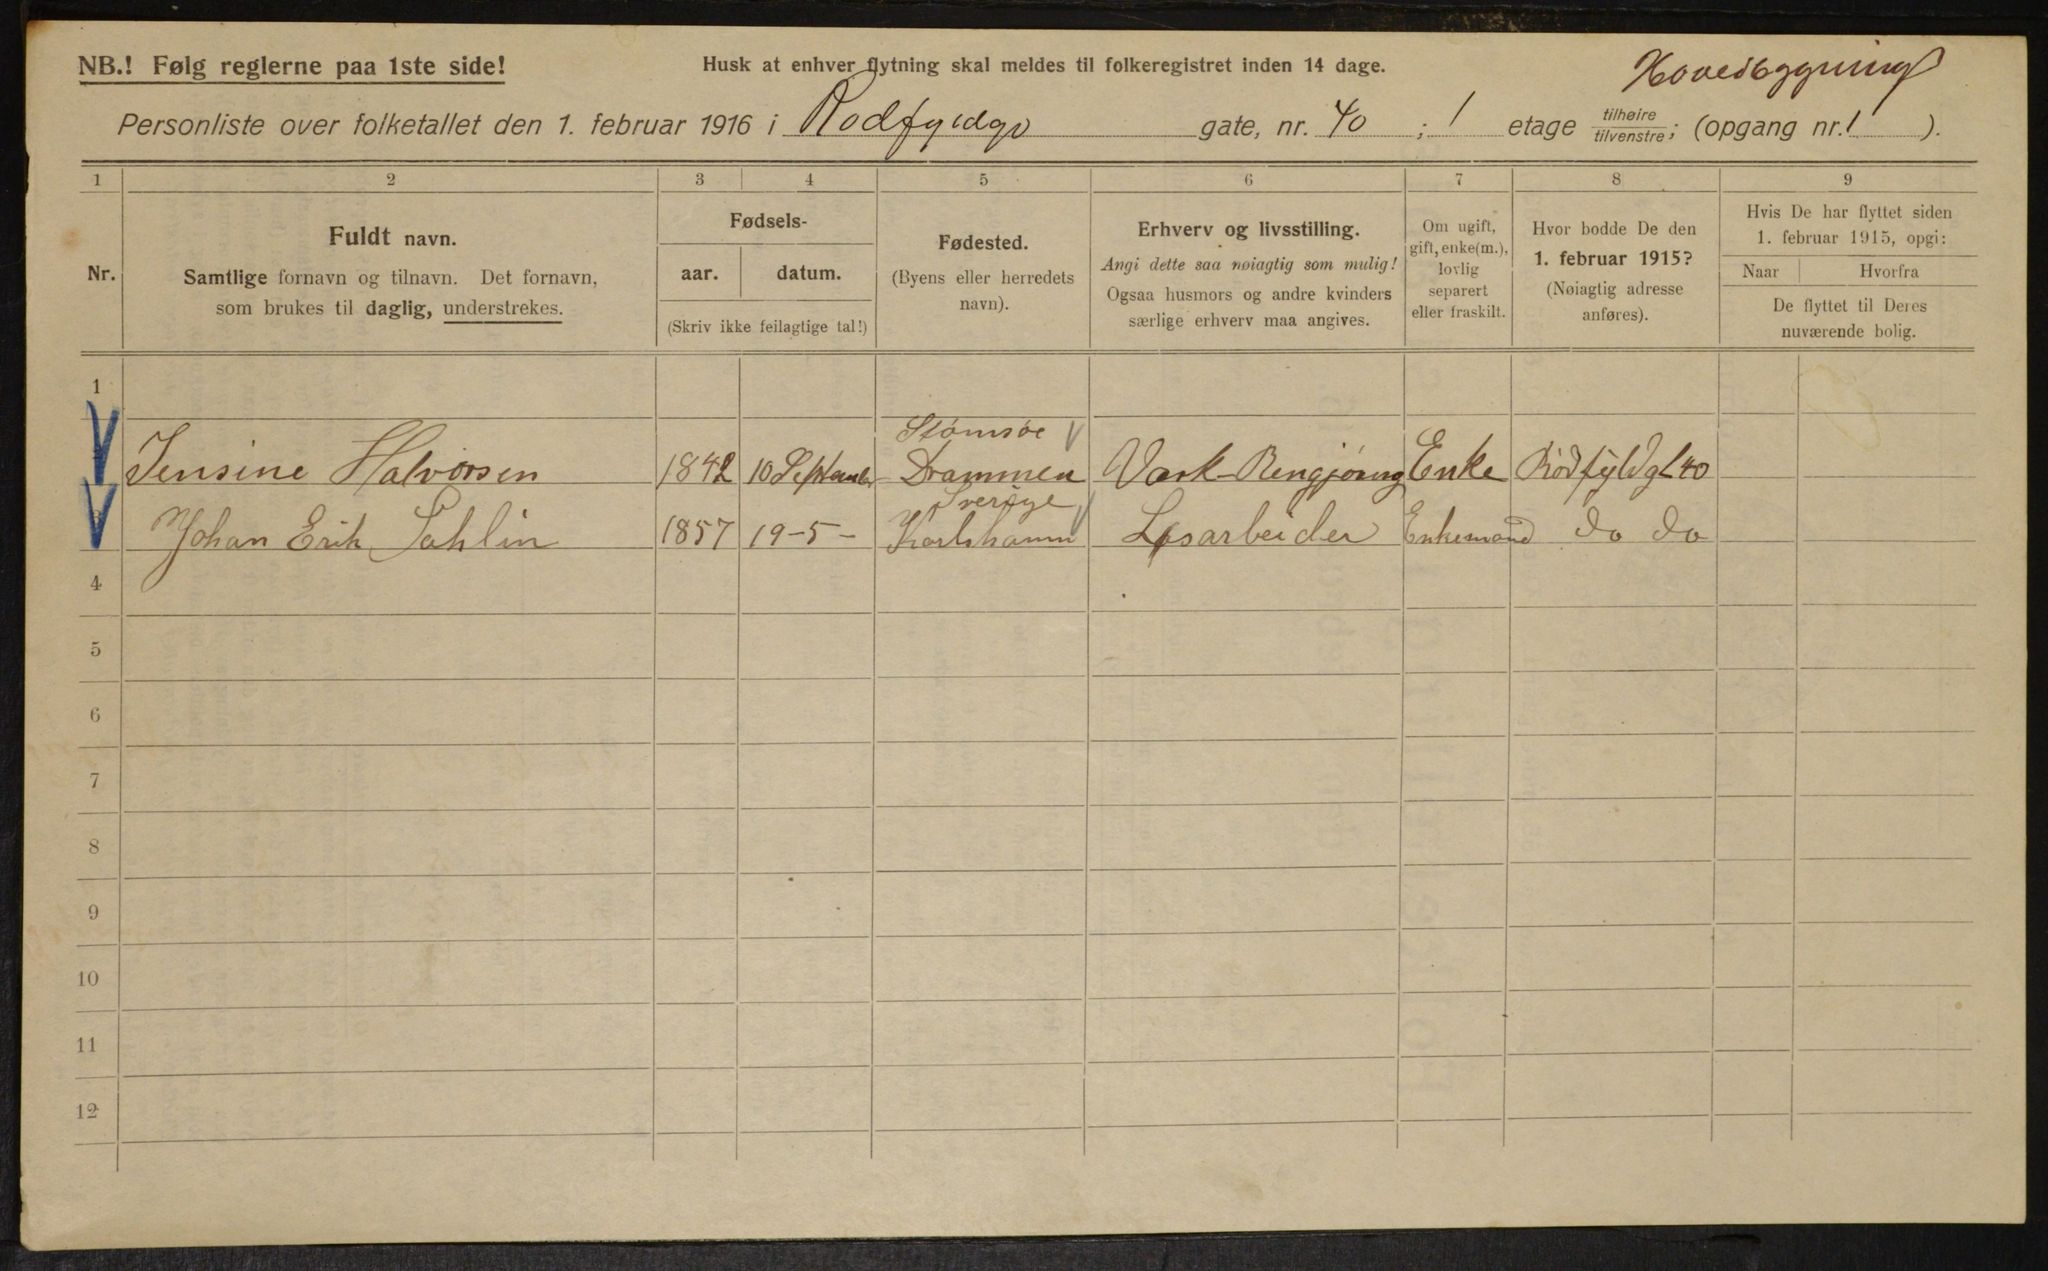 NB.! Følg reglerne paa 1ste side!
Husk at enhver flytning skal meldes til folkeregistret inden 14 dage.
Hovedbygning
Personliste over folketallet den 1. februar 1916 i Rodfyldgt gate, nr. 40 ; 1 etage tilhøire tilvenstre; (opgang nr. 1 ).
1 2 3 4 5 6 7 8 9
Nr.
Fuldt navn.
Samtlige fornavn og tilnavn. Det fornavn,
som brukes til daglig, understrekes.
Fødsels-
aar. datum.
(Skriv ikke feilagtige tal!)
Fødested.
(Byens eller herredets
navn).
Erhverv og livsstilling.
Angi dette saa nøiagtig som mulig!
Ogsaa husmors og andre kvinders
særlige erhverv maa angives.
Om ugift,
gift, enke(m.),
lovlig
separert
eller fraskilt.
Hvor bodde De den
1. februar 1915?
(Nøiagtig adresse
anføres).
Hvis De har flyttet siden
1. februar 1915, opgi:
Naar Hvorfra
De flyttet til Deres
nuværende bolig.
1
Stømsøe
Jensine Halvorsen 1842 10 September Drammen Vask-Rengjøring Enke Rödfyldgt 40
Sverige
3 Johan Erik Sahlin 1857 19-5- Karlshamn Løsarbeider Enkemand do do
4
5
6
7
8
9
10
11
12